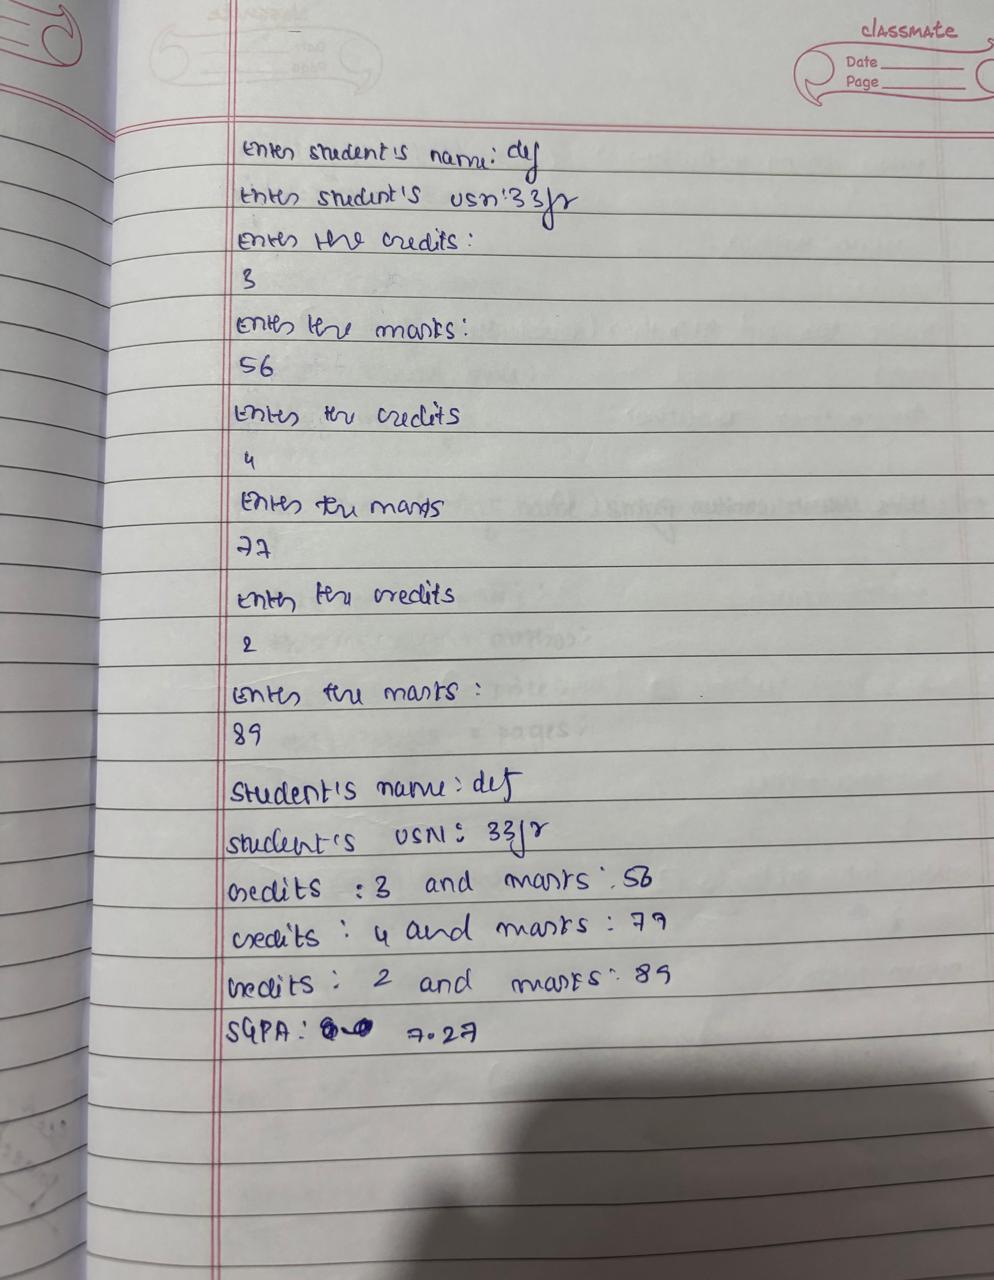 classmate
Date
Page
Enter student's name: def
Enter student's usn: 33jr
Enter the credits:
3
Enter the marks:
56
Enter the credits
4
Enter the marks
77
Enter the credits
2
Enter the marks:
89
Student's name: def
student's USN: 33jr
credits : 3 and marks : 56
credits : 4 and marks : 77
credits : 2 and marks : 89
SGPA: 7.27